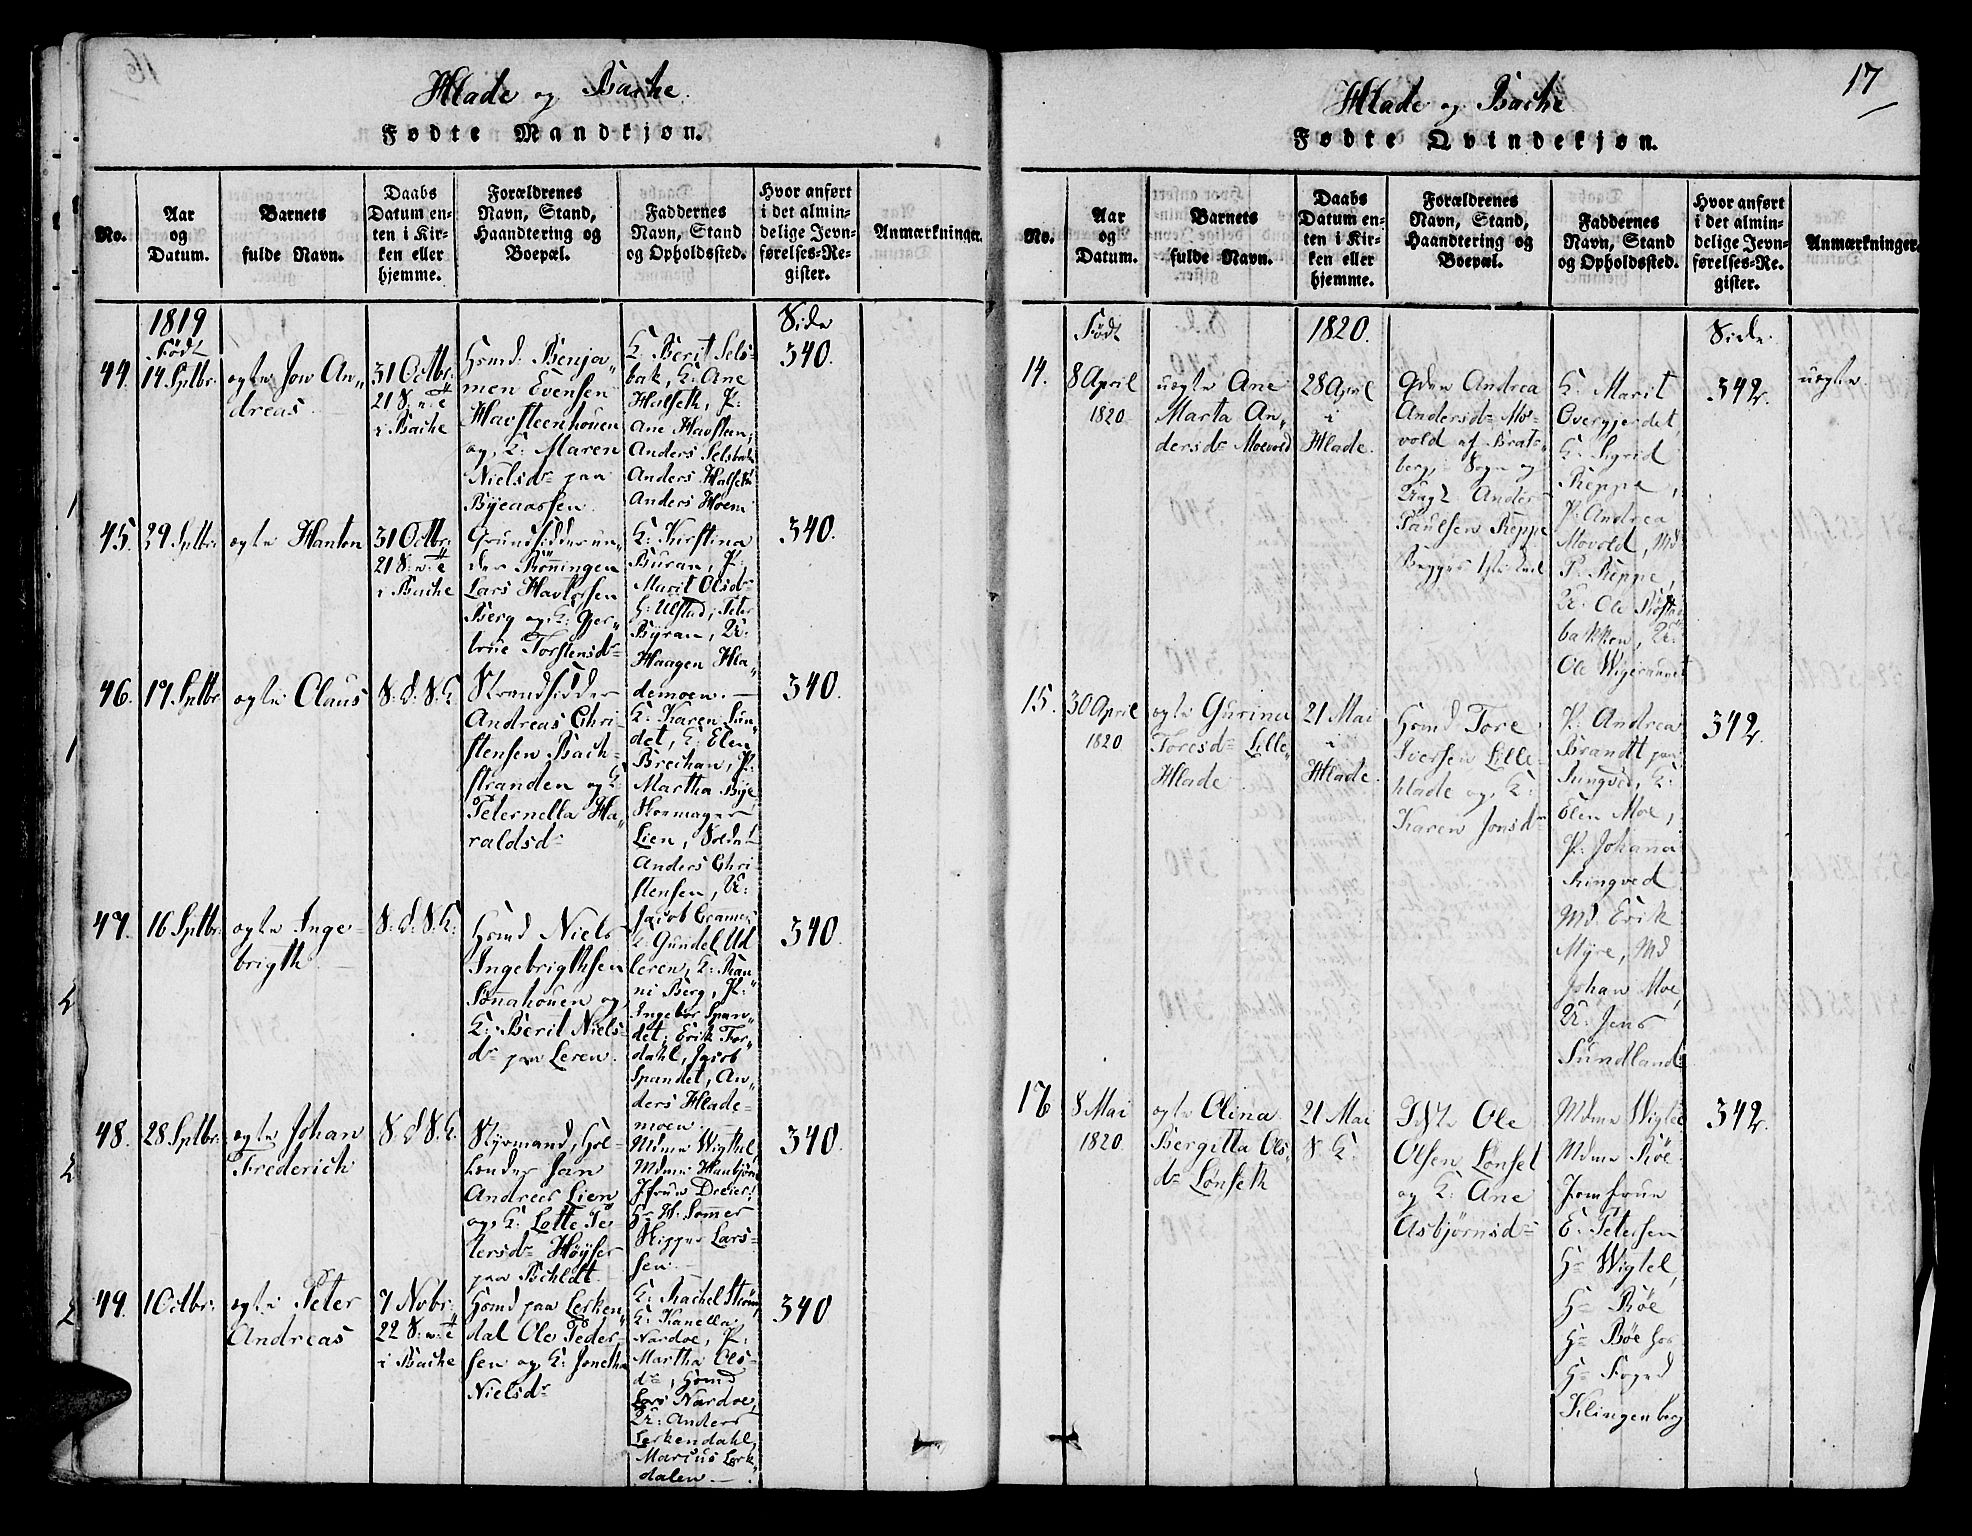 Hlade og Bache.
Fødte Mandkjøn.
No.
Aar
og
Datum.
Barnets
fulde Navn.
Daabs
Datum en-
ten i Kir-
ken eller
hjemme.
Forældrenes
Navn, Stand,
Haandtering og
Boepæl.
Faddernes
Navn, Stand
og Opholdssted.
Hvor anført
i det almin-
delige Jevn-
førelses-Re-
gister.
Anmærkninger.
1819
Født
Side
44.
14 Sptbr.
ægte Jon An-
dreas
31 Octbr.
21 S. n. T
i Bache
Huusmd. Benja-
men Evensen
Havsteenhouen
og K: Maren
Nielsd. paa
Byeaasen
K: Berit Sels-
bak, K: Ane
Halseth, P:
Ane Havsteen,
Anders Selsbak
Anders Halseth
Anders Hoem
340.
45.
29 Sptbr.
ægte Hanton
31 Octbr.
21 S. n. T
i Bache
Grundsidder un-
der Rönningen
Lars Havorsen
Berg og K: Gjer-
true Torstensd.
K: Kirstina
Buran, P:
Marit Olsd.
Ulstad, Peter
Byran, U:
Haagen Hla-
demoen.
340.
46.
19 Sptbr
ægte Claus
S: d: S: K
Strandsidder
Andreas Chri-
stensen Bach-
stranden og K:
Peternella Ha-
raldsd.
K: Karen Sun-
det, K: Elen
Breichan, P:
Martha Bye
Skomager
Lien, Soldat
Anders Chri-
stensen, U:
Jacob Cramer
340.
47.
16 Sptbr.
ægte Inge-
brigth
S: d: S: K:
Huusmd Niels
Ingebrigthsen
Sonahouen og
K: Berit Niels-
d. paa Leren.
K: Gundel Ud
leren, K: Ran-
ni Berg, P:
Ingebor Span-
det, Erik For-
dahl, Jacob
Spandet, An-
ders Hlade-
moen
340.
48.
28 Sptbr.
ægte Johan
Frederich
S: d: S: K:
Styrmand, Hol-
lender
Andreas Lien
og K: Lotte Pe-
tersd. Höyser
paa
Mdme Wigthel,
Mdme
Jfrue Dreier,
Hr H. Sommer
Skipper Lars-
sen.
340
49.
1 Octbr.
ægte Peter
Andreas
7 Novbr:
22 S: n: T
i Bache
Huusmd paa Lerken-
dal Ole Peder-
sen og K: Jonetha
Nielsd.
K: Rachel Ström
K: Kanella
Nardoe, P:
Martha Ols-
d., Huusmd
Lars Nardoe,
U: Anders
Lerkendahl,
Marcus Lerk-
dalen
340
17
Hlade og Bache
Fødte Qvindekjøn.
No.
Aar
og
Datum.
Barnets
fulde Navn.
Daabs
Datum en-
ten i Kir-
ken eller
hjemme.
Forældrenes
Navn, Stand,
Haandtering og
Boepæl.
Faddernes
Navn, Stand
og Opholdssted.
Hvor anført
i det almin-
delige Jevn-
førelses-Re-
gister.
Anmærkninger.
Født
1820.
Side.
14.
8 April
1820
uægte Ane
Marta An-
dersd. Moevold
28 April
i
Hlade.
Pigen Andrea
Andersd. Mo-
vold af Brat-
berg, Sogn og
Ungk: Anders
Paulsen Reppe
Begges 1ste Leiermaal
K: Marit
Overgjerdet,
K: Sigrid
Reppe,
P: Andrea
Movold, Md
P. Reppe,
U: Ole Röstad
bakken, U:
Ole
342.
uægte.
15.
30 April
1820
ægte Gurina
Toresd. Lille-
Hlade
21 Mai
i
Hlade.
Huusmd Tore
Iversen Lille-
hlade og K:
Karen Jonsd.
P: Andrea
Brandt paa
Ringved, K:
Elen Moe,
P: Johana
Ringved
Md. Erik
Myre, Md
Johan Moe,
U: Jens
Sundland
342.
16
8 Mai
1820
ægte Olina
Bergitta Ols-
d. Lönseth
21 Mai
S K:
Ole
Olsen Lönset
og K: Ane
Asbjörnsd.
Mdme Wigtel
Mdme Röe
Jomfrue
E. Petersen
Hr Wigtel,
Hr Röe
Hr Böe
Hr Foged
Klingenberg
342.